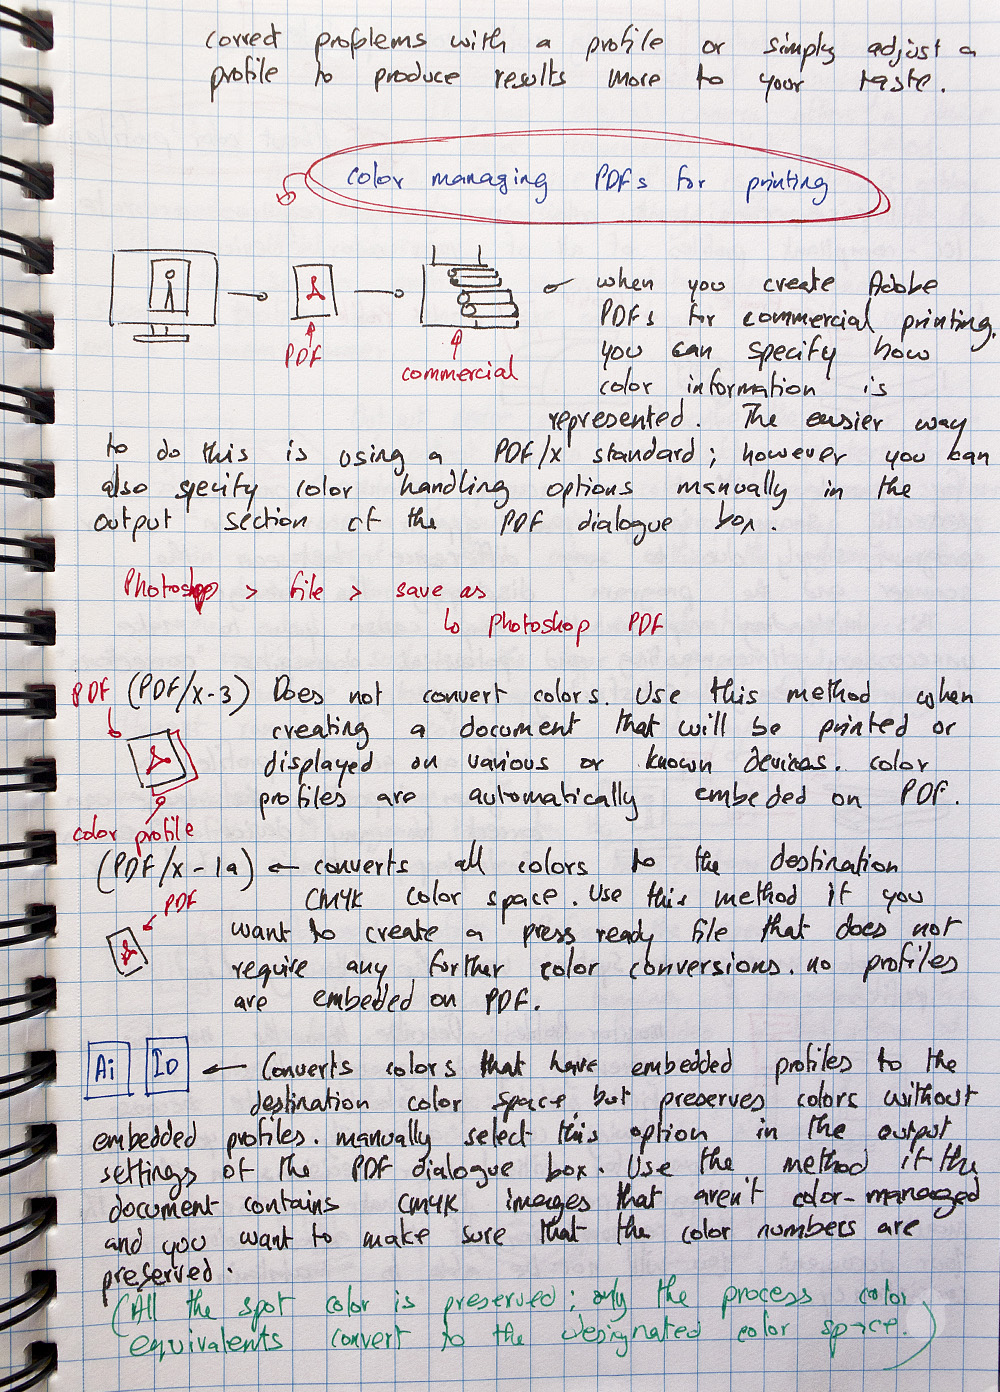 correct problems with a profile or simply adjust a
profile to produce results more to your taste.
color managing PDFs for printing
when you create Adobe
PDFs for commercial printing,
you can specify how
color information is
represented. The easier way
to do this is using a PDF/x standard; however you can
also specify color handling options manually in the
output section of the PDF dialogue box.
PDF
commercial
Photoshop > file > save as
Photoshop PDF
PDF (PDF/x-3) Does not convert colors. Use this method when
creating a document that will be printed or
displayed on various or known devices. color
profiles are automatically embeded on PDF.
color profile
(PDF/x-1a) ← converts all colors to the destination
CMYK color space. Use this method if you
PDF
want to create a press ready file that does not
require any further color conversions. no profiles
are embeded on PDF.
Ai ID ← Converts colors that have embedded profiles to the
destination color space, but preserves colors without
embedded profiles. manually select this option in the output
settings of the PDF dialogue box. Use the method if the
document contains CMYK images that aren't color-managed
and you want to make sure that the color numbers are
preserved.
(All the spot color is preserved; only the process color
equivalents convert to the designated color space.)